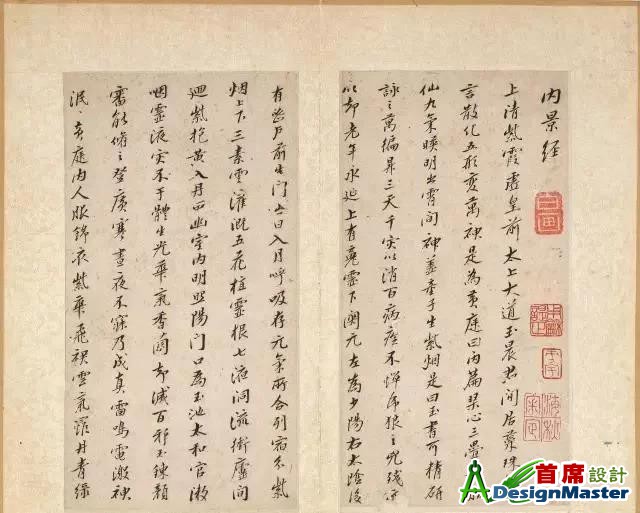 內景經
上清紫霞虛皇前太上大道玉晨君閒居蘂珠
言散化五形變萬神是為黃庭曰內篇琴心三疊
仙九氣暎明出霄間神蓋童子生紫烟是曰玉書可精研
詠之萬徧昇三天千灾以消百病痊不憚虎狼之兇殘亦
以却老年永延上有魂靈下關元左為少陽右太陰後
有密戶前生門出日入月呼吸存元氣所合列宿分紫
烟上下三素雲灌溉五花植靈根七液洞流衝廬間
迴紫抱黃入丹田幽室內明照陽門口為玉池太和官漱
咽靈液灾不干體生光華氣香蘭却滅百邪玉鍊顏
審能脩之登廣寒晝夜不寐乃成真雷鳴電激神
泯〻黃庭內人服錦衣紫華飛裙雲氣羅丹青綠
首席設計
DesignMaster